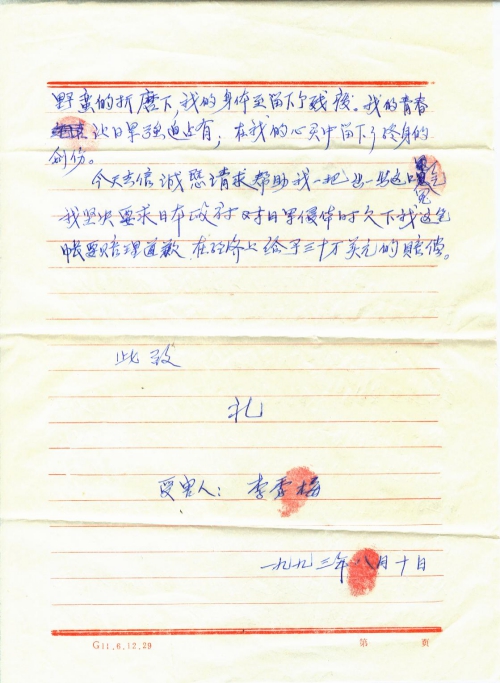 野蛮的折磨下,我的身体至留下了残废。我的青春
让日军强迫占有,在我的心灵中留下了终身的
创伤。
今天去信诚恳请求帮助我一把出一出这口冤气
我坚决要求日本政府对日军侵华时欠下我这笔
帐要赔理道歉在经济上给予三十万美元的赔偿。
此致
礼
受害人:李秀梅
一九九三年八月十日
G11.6.12.29 第 页